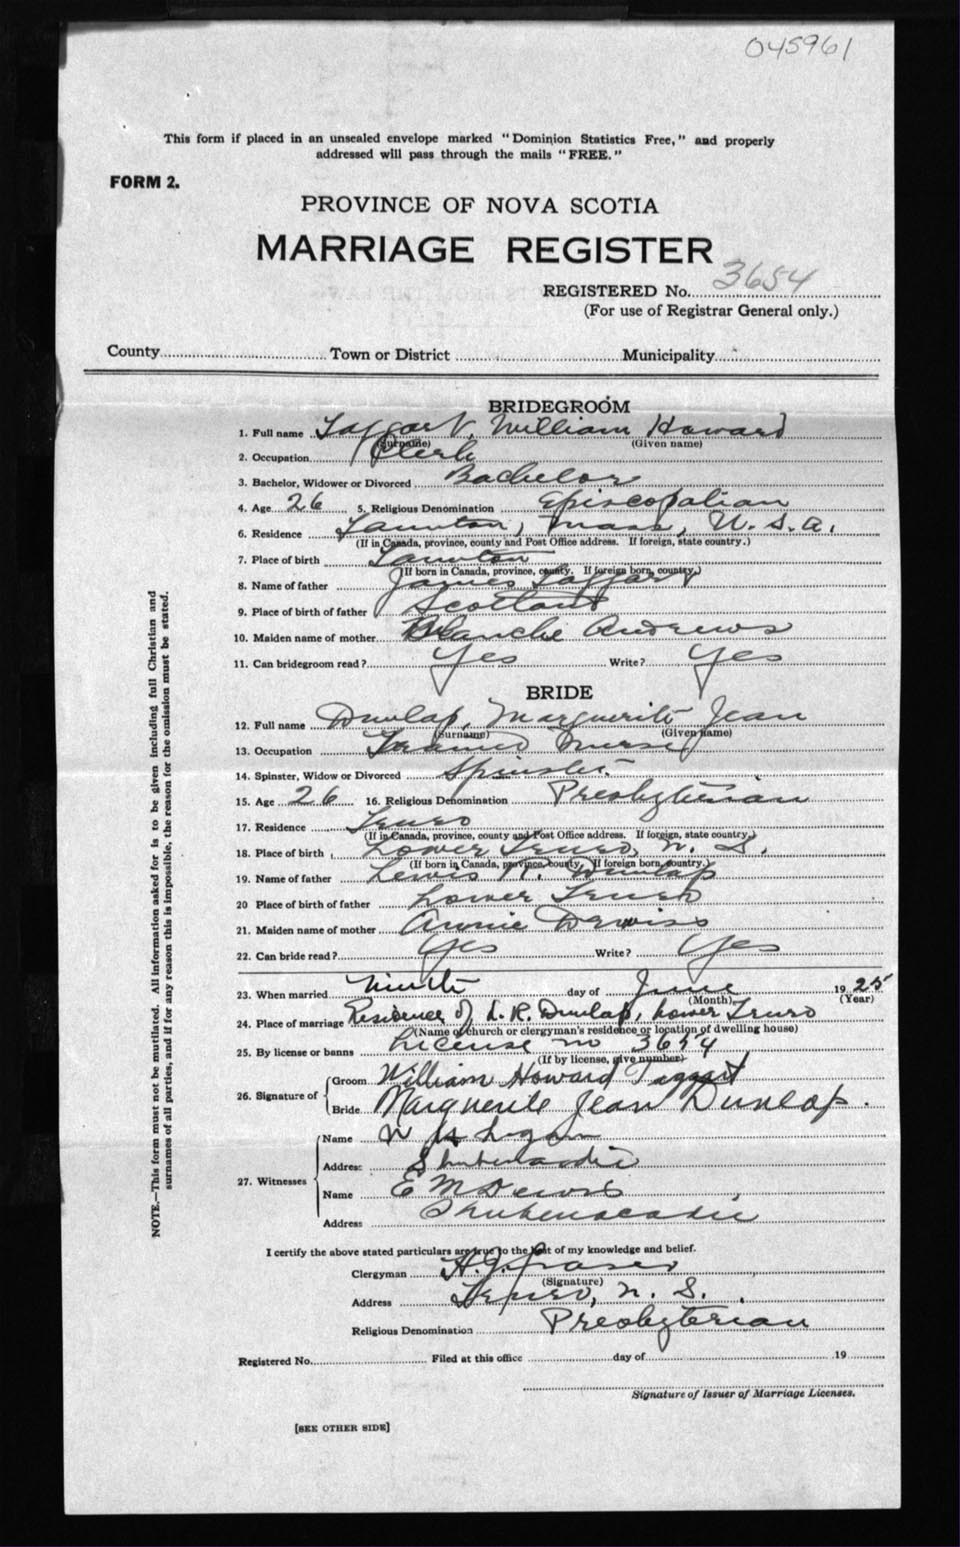 045961
This form if placed in an unsealed envelope marked "Dominion Statistics Free," and properly
addressed will pass through the mails "FREE."
FORM 2.
PROVINCE OF NOVA SCOTIA
MARRIAGE REGISTER
REGISTERED No. 3654
(For use of Registrar General only.)
County Town or District Municipality
BRIDEGROOM
1. Full name Taggart, William Howard
(Surname) (Given name)
2. Occupation Clerk
3. Bachelor, Widower or Divorced Bachelor
4. Age 26 5. Religious Denomination Episcopalian
6. Residence Taunton, Mass, U.S.A.
(If in Canada, province, county and Post Office address. If foreign, state country.)
7. Place of birth Taunton
(If born in Canada, province, county. If foreign born, country.)
8. Name of father James Taggart
9. Place of birth of father Scotland
10. Maiden name of mother Blanche Andrews
11. Can bridegroom read? Yes Write? Yes
BRIDE
12. Full name Dunlap, Marguerite Jean
(Surname) (Given name)
13. Occupation Trained Nurse
14. Spinster, Widow or Divorced Spinster
15. Age 26 16. Religious Denomination Presbyterian
17. Residence Truro
(If in Canada, province, county and Post Office address. If foreign, state country.)
18. Place of birth Lower Truro, N. S.
(If born in Canada, province, county. If foreign born, country.)
19. Name of father Lewis R. Dunlap
20 Place of birth of father Lower Truro
21. Maiden name of mother Annie
22. Can bride read? Yes Write? Yes
23. When married Ninth day of June 1925
(Month) (Year)
24. Place of marriage Residence of L. R. Dunlap, Lower Truro
(Name of church or clergyman's residence or location of dwelling house)
25. By license or banns License no 3654
(If by license, give number)
26. Signature of Groom William Howard Taggart
Bride Marguerite Jean Dunlap.
27. Witnesses Name Logan
Address Shubenacadie
Name E M
Address Shubenacadie
I certify the above stated particulars are true to the best of my knowledge and belief.
Clergyman H. J. Fraser
(Signature)
Address Truro, N. S.
Religious Denomination Presbyterian
Registered No. Filed at this office day of 19
Signature of Issuer of Marriage Licenses.
[SEE OTHER SIDE]
NOTE.—This form must not be mutilated. All information asked for is to be given including full Christian and
surnames of all parties, and if for any reason this is impossible, the reason for the omission must be stated.